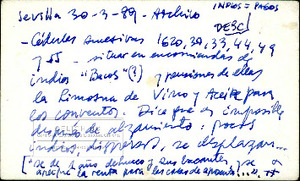 Sevilla 30-3-89 - Archivo
INDIOS = PAGOS
DESC
- Cédulas sucesivas 1620, 30, 33, 44, 49
y ss - situar en encomiendas de
indios "Bacos" (?) y pensiones de ellas
la limosna de Vino y Aceite para
los conventos. Dice que es imposible
después de alzamiento: pocos
indios, dispersos, se desplazan...
["se de 1 año de hueco y sus vacantes, que se
la renta para las casas de aposento...